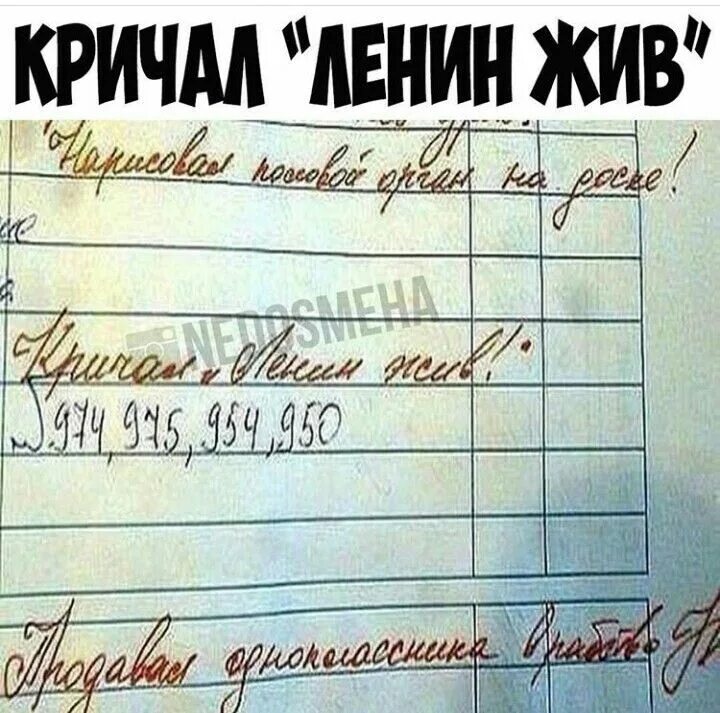 КРИЧАЛ "ЛЕНИН ЖИВ"
"Нарисовал половой орган на доске!
NEDOSMEHA
"Кричал „Ленин жив!"
974, 975, 954, 950
Продавал одноклассника в рабство